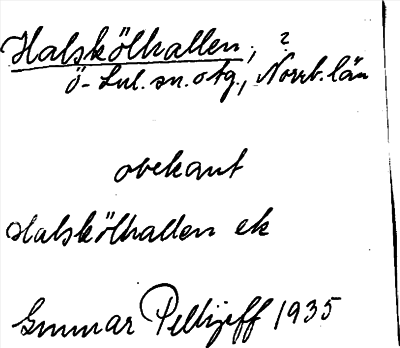 Halskölhallen, ?
ö-Lul. sn. o tg., Norrb. län
obekant
Halskölhallen ek
Gunnar Pellijeff 1935